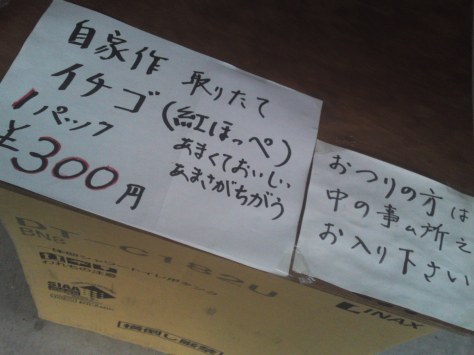 自家作 取りたて
イチゴ(紅ほっぺ)
1パック あまくておいしい
¥300円 あまさがちがう
おつりの方は
中の事ム所え
お入り下さい
DT-C182U
BNS
LINAX
SIAA